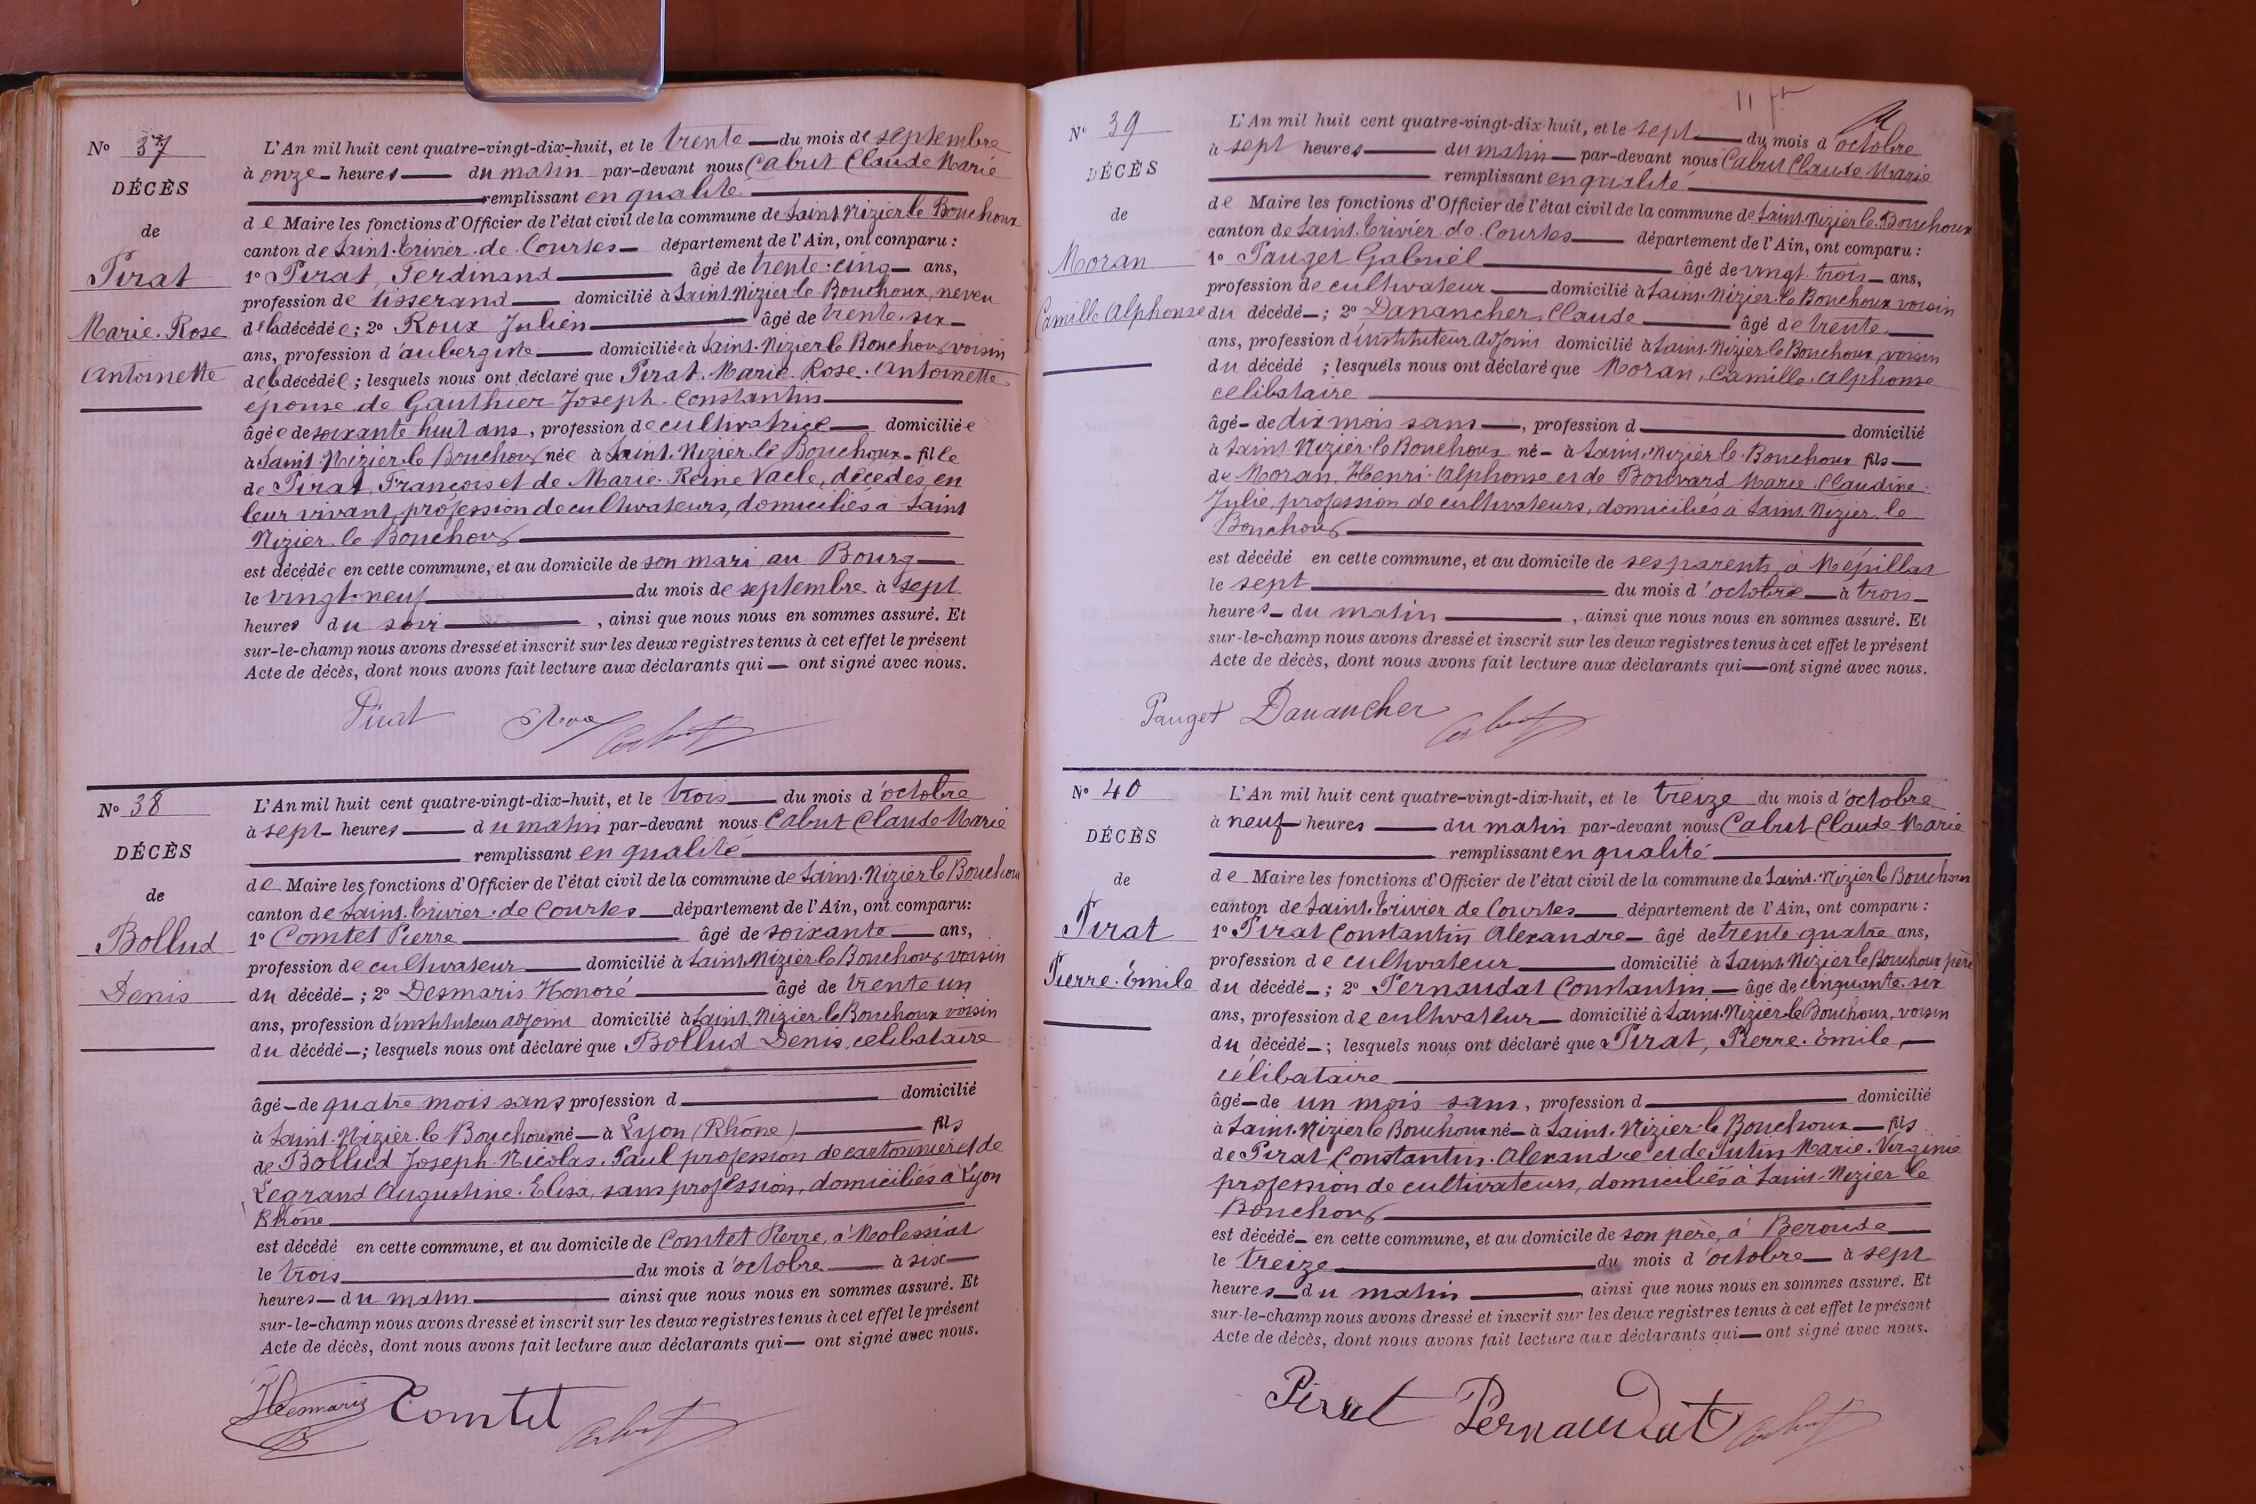 N° 37
DÉCÈS
de
Pirat
Marie. Rose
Antoinette
L'An mil huit cent quatre-vingt-dix-huit, et le trente du mois de septembre
à onze heures du matin par-devant nous Cabut Claude Marie
remplissant en qualité
de Maire les fonctions d'Officier de l'état civil de la commune de Saint Nizier le Bouchoux
canton de Saint. Trivier. de. Courtes département de l'Ain, ont comparu :
1° Pirat, Ferdinand âgé de trente-cinq ans,
profession de tisserand domicilié à Saint Nizier le Bouchoux, neveu
de la décédée ; 2° Roux Julien âgé de trente-six
ans, profession d'aubergiste domicilié à Saint. Nizier le Bouchoux voisin
de la décédée ; lesquels nous ont déclaré que Pirat. Marie. Rose. Antoinette
épouse de Gauthier Joseph. Constantin
âgée de soixante huit ans, profession de cultivatrice domiciliée
à Saint. Nizier. le Bouchoux née à Saint. Nizier. le Bouchoux fille
de Pirat, François et de Marie. Reine Vacle, décédés, en
leur vivant, profession de cultivateurs, domiciliés à Saint
Nizier. le Bouchoux
est décédée en cette commune, et au domicile de son mari au Bourg
le vingt-neuf du mois de septembre à sept
heures du soir, ainsi que nous nous en sommes assuré. Et
sur-le-champ nous avons dressé et inscrit sur les deux registres tenus à cet effet le présent
Acte de décès, dont nous avons fait lecture aux déclarants qui ont signé avec nous.
Pirat Roux Cabut
N° 38
DÉCÈS
de
Bollud
Denis
L'An mil huit cent quatre-vingt-dix-huit, et le trois du mois d'octobre
à sept heures du matin par-devant nous Cabut Claude Marie
remplissant en qualité
de Maire les fonctions d'Officier de l'état civil de la commune de Saint. Nizier le Bouchoux
canton de Saint. Trivier. de Courtes département de l'Ain, ont comparu :
1° Comtet Pierre âgé de soixante ans,
profession de cultivateur domicilié à Saint Nizier le Bouchoux voisin
du décédé ; 2° Desmaris Honoré âgé de trente un
ans, profession d'instituteur adjoint domicilié à Saint. Nizier le Bouchoux voisin
du décédé ; lesquels nous ont déclaré que Bollud Denis, célibataire
âgé de quatre mois sans profession d domicilié
à Saint. Nizier. le Bouchoux né à Lyon (Rhône) fils
de Bollud Joseph. Nicolas. Paul profession de cartonnier et de
Legrand Augustine. Elisa, sans profession, domiciliés à Lyon
Rhône
est décédé en cette commune, et au domicile de Comtet Pierre, à Molossiat
le trois du mois d'octobre à six
heures du matin ainsi que nous nous en sommes assuré. Et
sur-le-champ nous avons dressé et inscrit sur les deux registres tenus à cet effet le présent
Acte de décès, dont nous avons fait lecture aux déclarants qui ont signé avec nous.
HDesmaris Comtet Cabut
11
N° 39
DÉCÈS
de
Moran
Camille Alphonse
L'An mil huit cent quatre-vingt-dix-huit, et le sept du mois d'octobre
à sept heures du matin par-devant nous Cabut Claude Marie
remplissant en qualité
de Maire les fonctions d'Officier de l'état civil de la commune de Saint. Nizier le. Bouchoux
canton de Saint. Trivier de. Courtes département de l'Ain, ont comparu :
1° Pauget Gabriel âgé de vingt. trois ans,
profession de cultivateur domicilié à Saint. Nizier. le Bouchoux voisin
du décédé ; 2° Danancher, Claude âgé de trente
ans, profession d'instituteur adjoint domicilié à Saint. Nizier le Bouchoux, voisin
du décédé ; lesquels nous ont déclaré que Moran, Camille. Alphonse
célibataire
âgé de dix mois sans, profession d domicilié
à Saint Nizier. le Bouchoux né à Saint. Nizier le. Bouchoux fils
de Moran, Henri. Alphonse et de Bouvard Marie. Claudine.
Julie, profession de cultivateurs, domiciliés à Saint. Nizier. le
Bouchoux
est décédé en cette commune, et au domicile de ses parents, à Mépillat
le sept du mois d'octobre à trois
heures du matin, ainsi que nous nous en sommes assuré. Et
sur-le-champ nous avons dressé et inscrit sur les deux registres tenus à cet effet le présent
Acte de décès, dont nous avons fait lecture aux déclarants qui ont signé avec nous.
Pauget Danancher Cabut
N° 40
DÉCÈS
de
Pirat
Pierre. Émile
L'An mil huit cent quatre-vingt-dix-huit, et le treize du mois d'octobre
à neuf heures du matin par-devant nous Cabut Claude Marie
remplissant en qualité
de Maire les fonctions d'Officier de l'état civil de la commune de Saint. Nizier le Bouchoux
canton de Saint. Trivier de Courtes département de l'Ain, ont comparu :
1° Pirat Constantin Alexandre âgé de trente quatre ans,
profession de cultivateur domicilié à Saint Nizier le Bouchoux père
du décédé ; 2° Pernaudat Constantin âgé de cinquante. six
ans, profession de cultivateur domicilié à Saint. Nizier le Bouchoux, voisin
du décédé ; lesquels nous ont déclaré que Pirat, Pierre. Émile,
célibataire
âgé de un mois sans, profession d domicilié
à Saint. Nizier le Bouchoux né à Saint. Nizier. le Bouchoux fils
de Pirat Constantin. Alexandre et de Putin Marie. Virginie
profession de cultivateurs, domiciliés à Saint. Nizier le
Bouchoux
est décédé en cette commune, et au domicile de son père, à Beroude
le treize du mois d'octobre à sept
heures du matin, ainsi que nous nous en sommes assuré. Et
sur-le-champ nous avons dressé et inscrit sur les deux registres tenus à cet effet le présent
Acte de décès, dont nous avons fait lecture aux déclarants qui ont signé avec nous.
Pirat Pernaudat Cabut